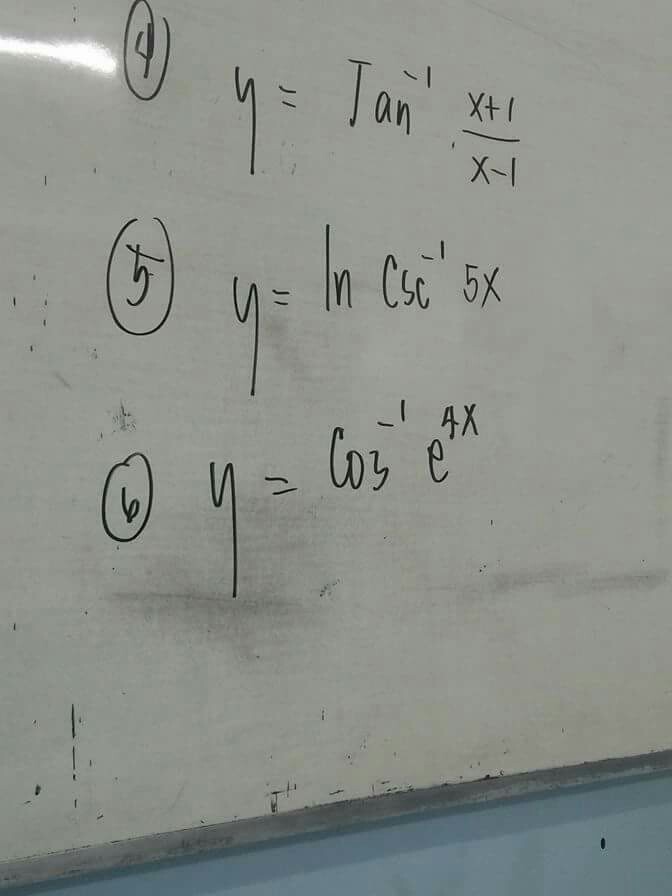 ④ y = Tan⁻¹ (x+1)/(x-1)
⑤ y = ln Csc⁻¹ 5x
⑥ y = Cos⁻¹ e⁴ˣ